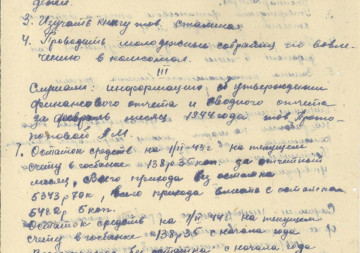 3. Изучать книгу тов. Сталина.
4. Проводить молодежные собрания по вовле-
чению в комсомол.
III
Слушали: информацию об утверждении
финансового отчета и сводного отчета
за февраль месяц 1944 года тов Прото-
поповой А.М.
1. Остаток средств на 1/II-44г. на текущем
счету в госбанке 138р35коп. за отчетный
месяц, Всего прихода без остатка
5343р70к, Всего прихода вместе с остатком
5482р 5коп.
Остаток средств на 1/II-44г на текущем
счету в госбанке 138р35 с начала года
без остатка с начала года